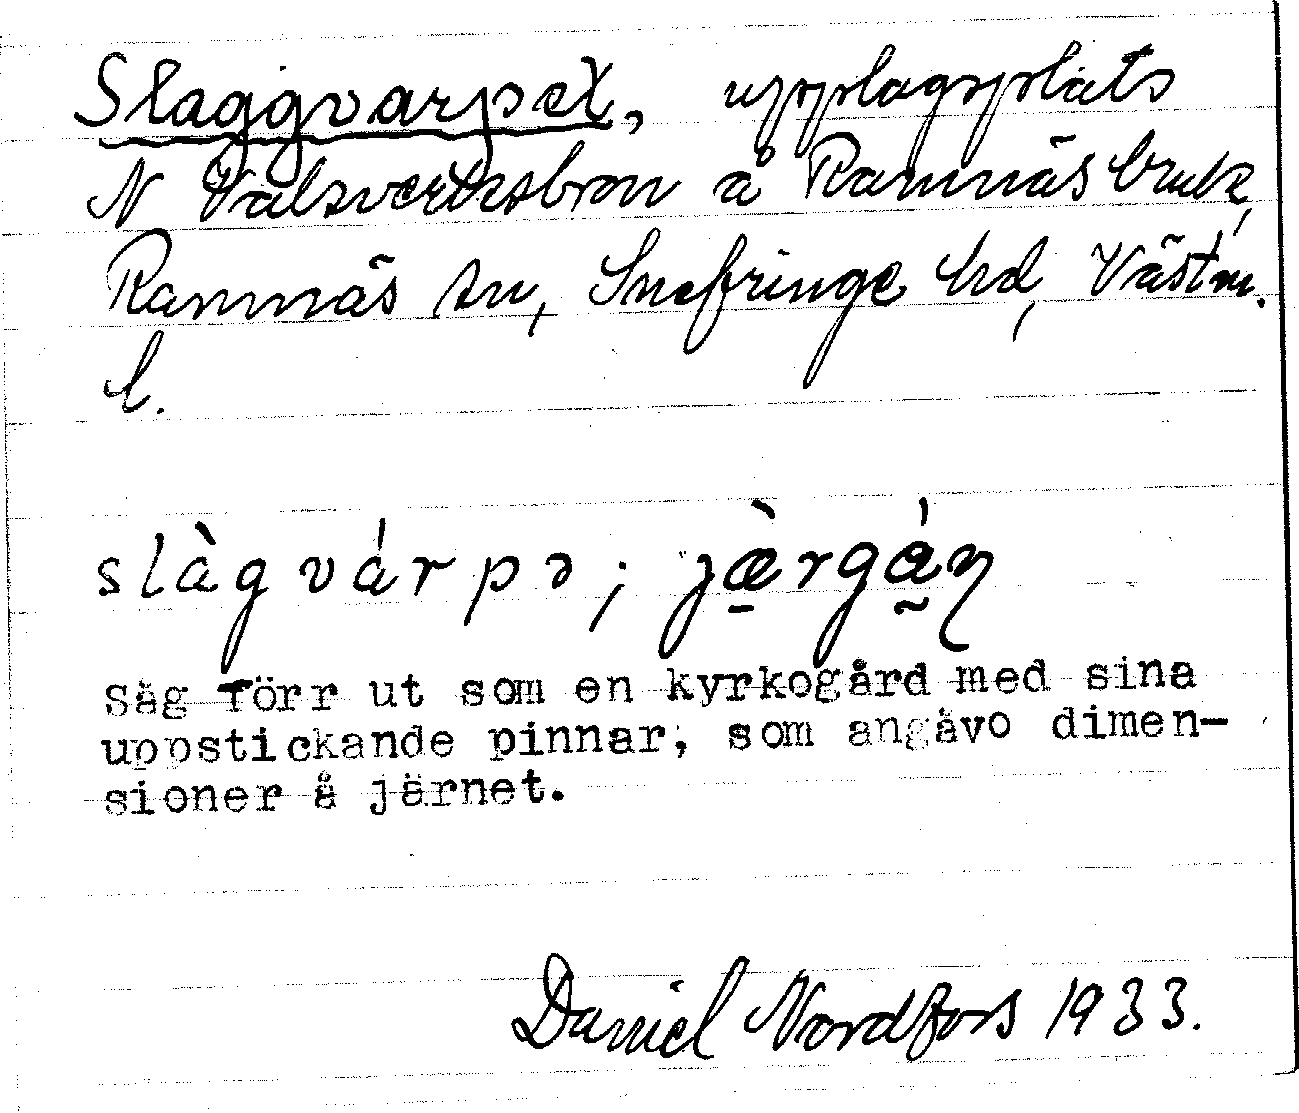 Slaggvarpet, upplagsplats
N Valsverksbron å Ramnäs bruk,
Ramnäs sn, Snefringe hd, Västm.
l.
slàgvárpə; jæ̀rgáɳ
Säg förr ut som en kyrkogård med sina
uppstickande pinnar, som angåvo dimen-
sioner å järnet.
Daniel Nordfors 1933.